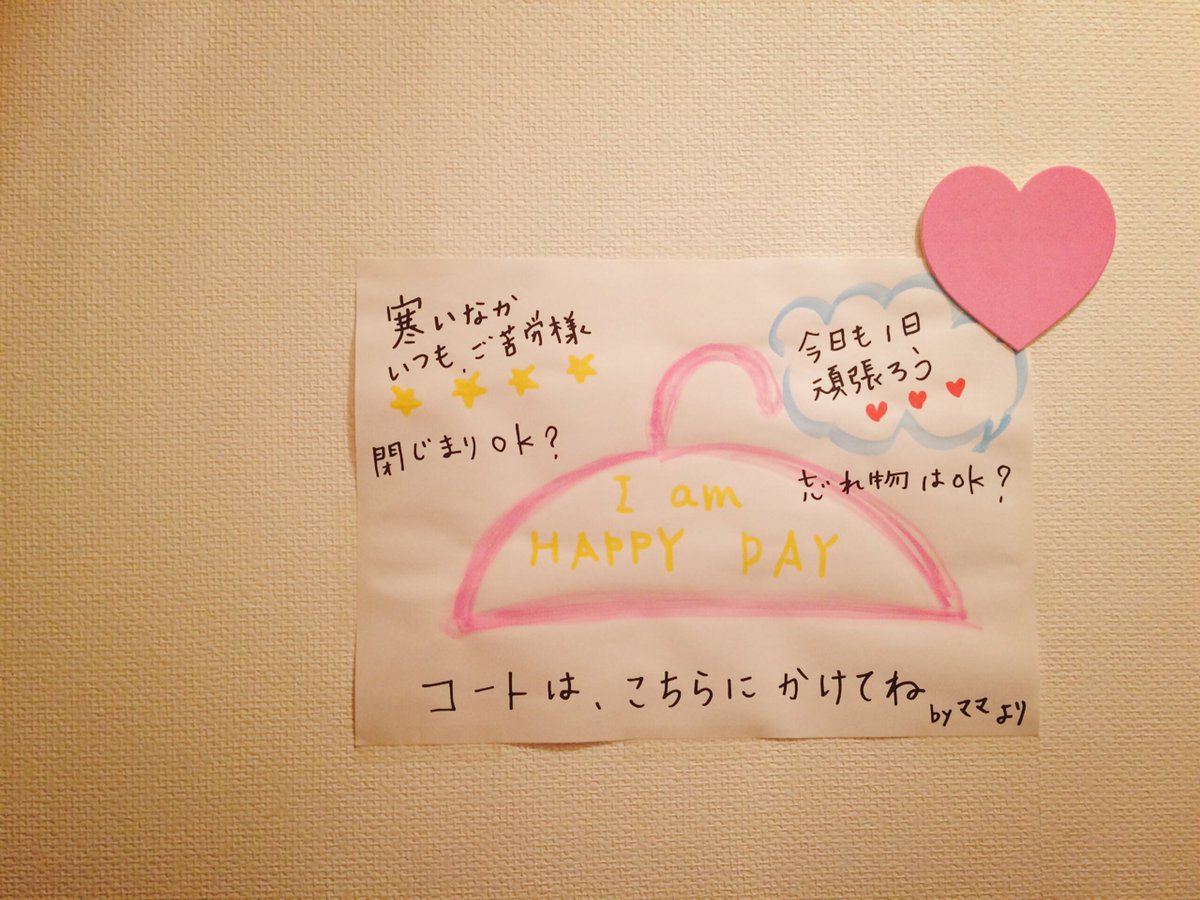 寒いなか
いつも、ご苦労様
閉じまりok?
今日も1日
頑張ろう
忘れ物はok?
I am
HAPPY DAY
コートは、こちらにかけてね
byママより